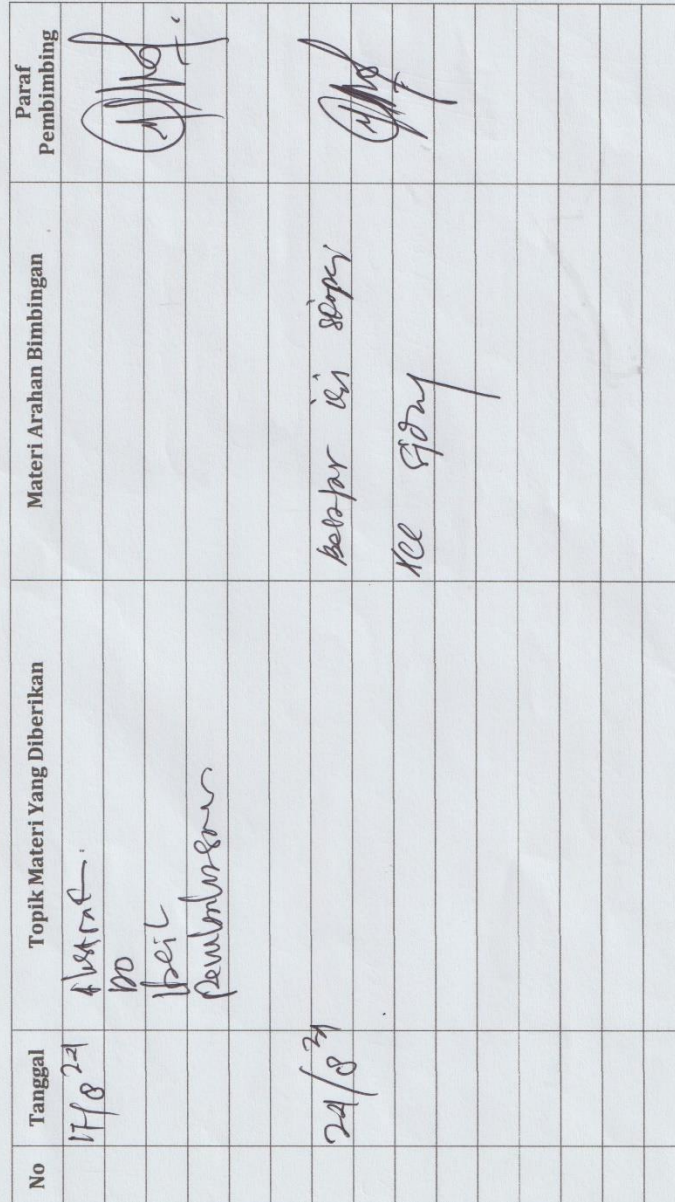 No Tanggal Topik Materi Yang Diberikan Materi Arahan Bimbingan Paraf Pembimbing
17/8 21 Abstrak.
DO
Hasil
Pembahasan
24/8 21 belajar isi skripsi
Acc sidang